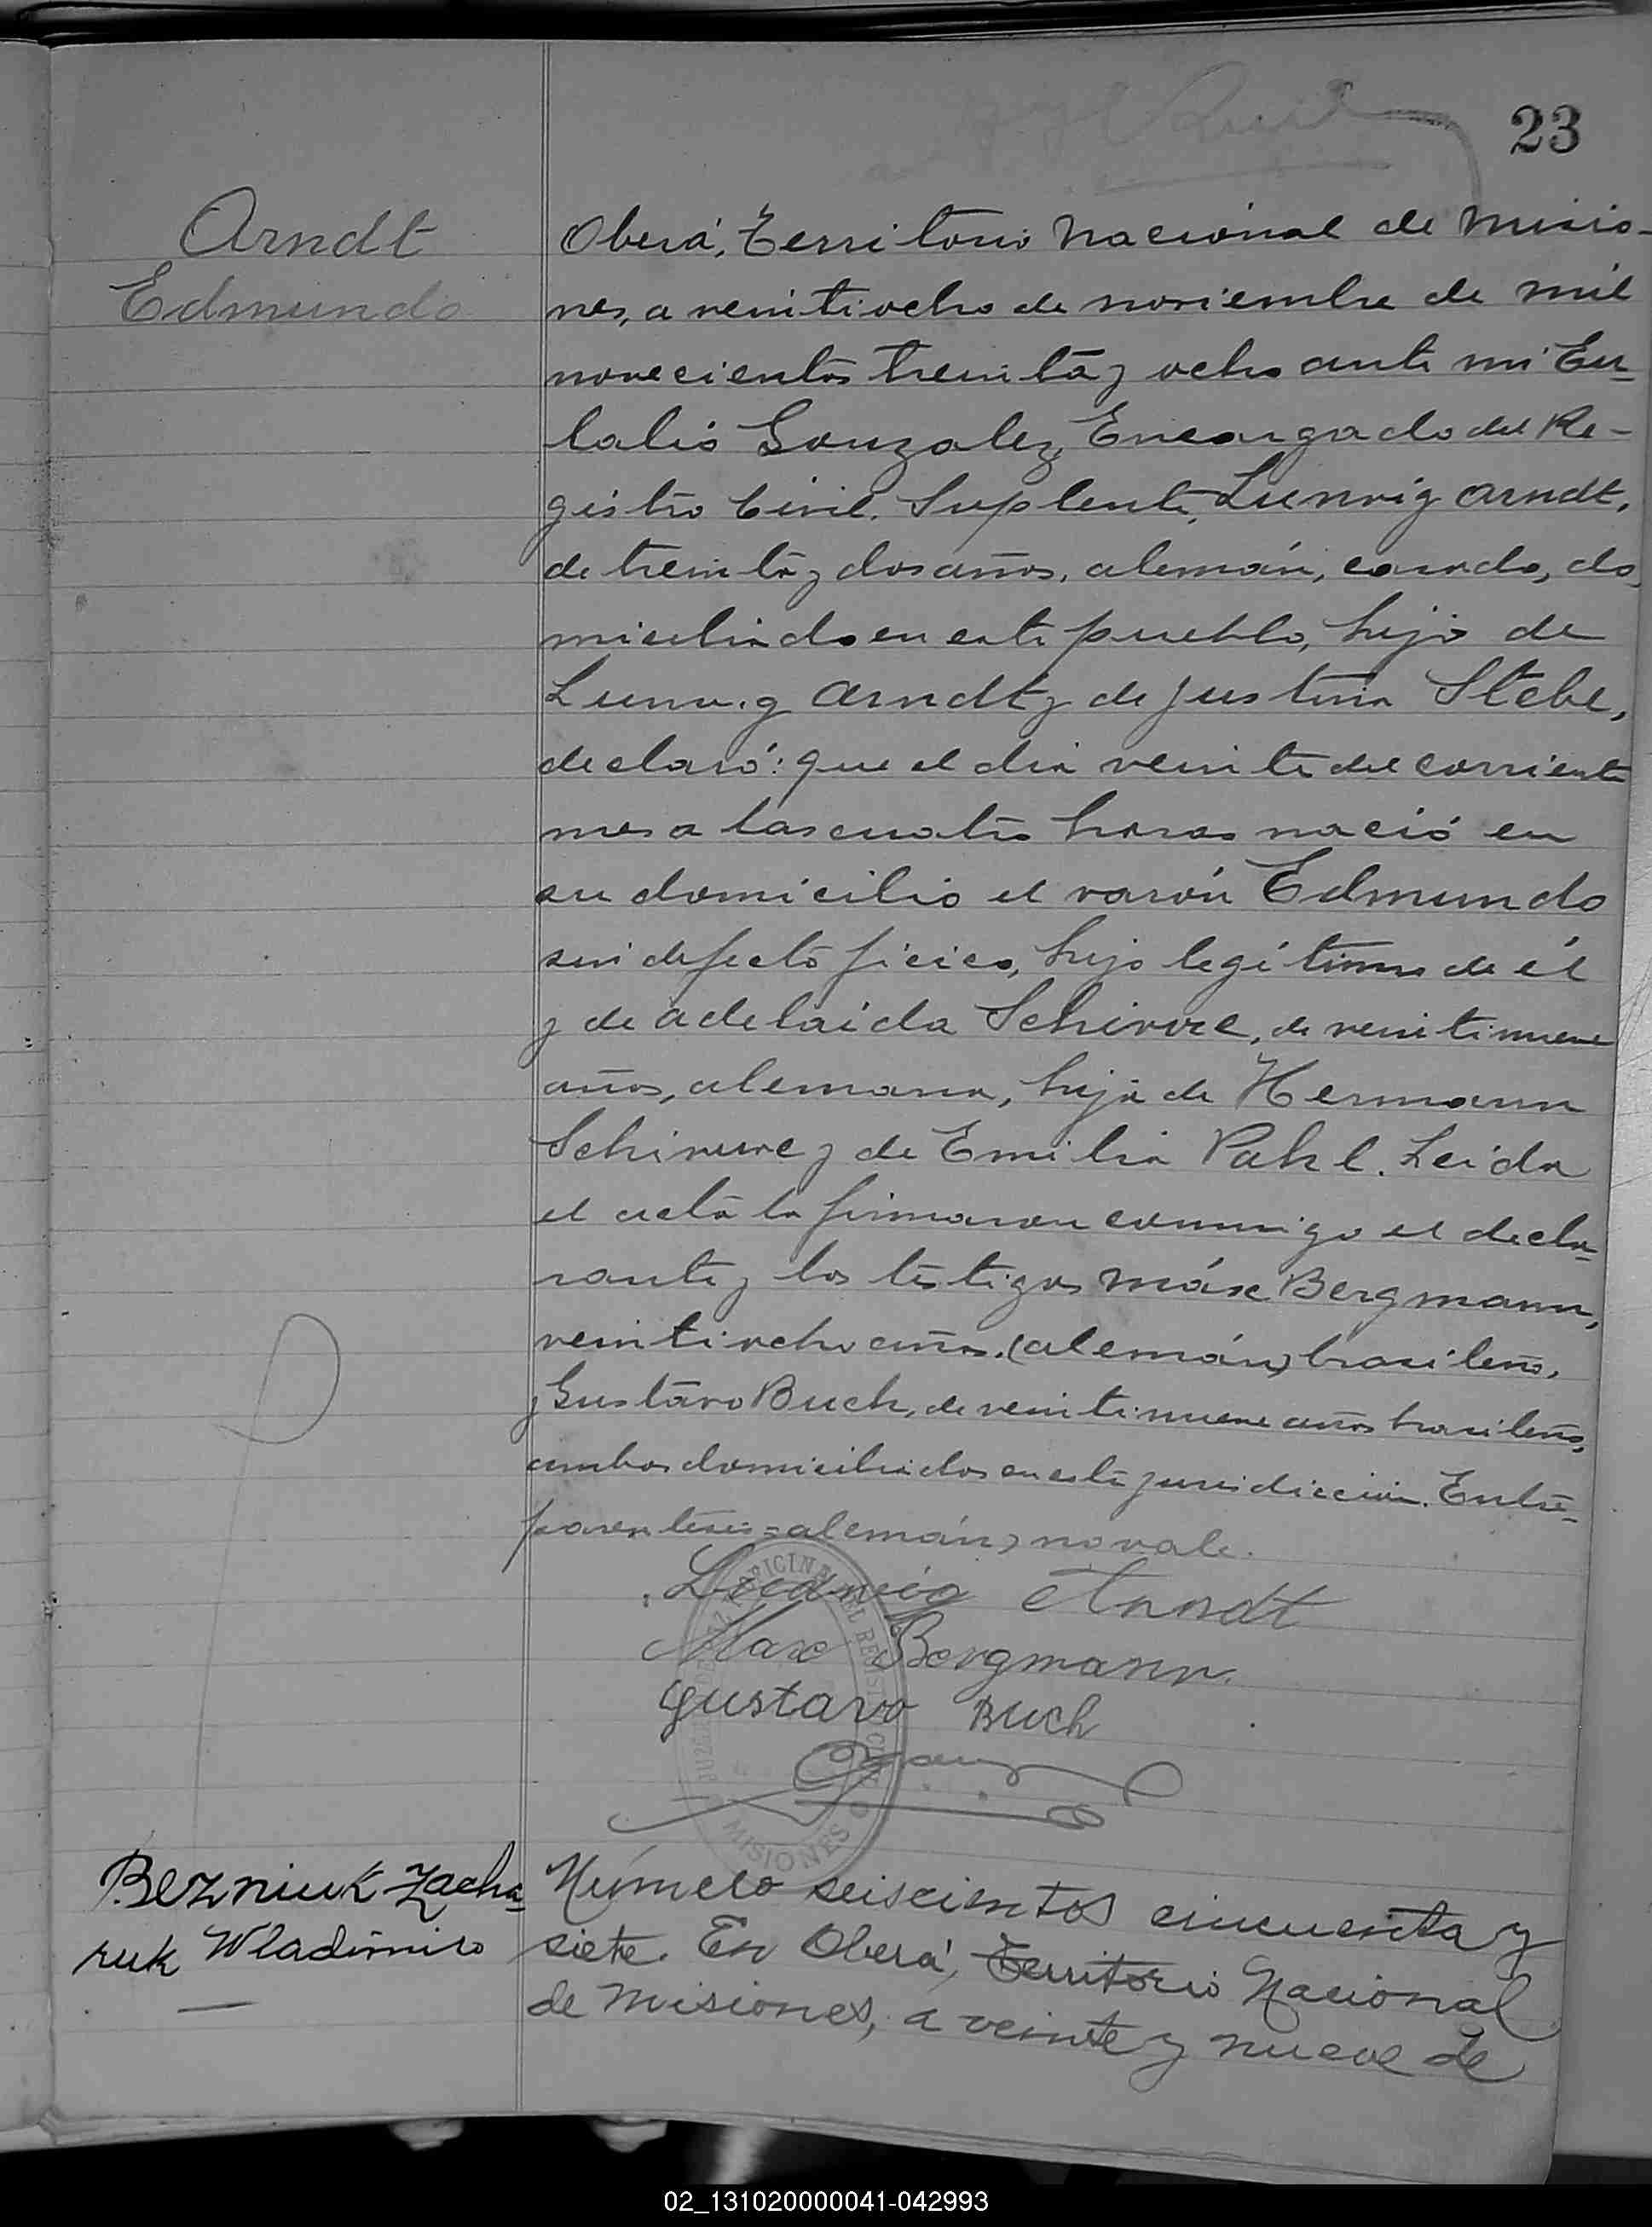 23
Arndt
Edmundo
Oberá, Territorio Nacional de Misio-
nes, a veintiocho de noviembre de mil
novecientos treinta y ocho ante mi Eu-
lalio Gonzalez, Encargado del Re-
gistro Civil Suplente, Lunwig Arndt,
de treinta y dos años, alemán, casado, do-
miciliado en este pueblo, hijo de
Lunwig Arndt y de Justina Stebe,
declaró: que el dia veinte del corriente
mes a las cuatro horas nació en
su domicilio el varón Edmundo
sin defecto ficico, hijo legítimo de él
y de Adelaida Schirwe, de veintinueve
años, alemana, hija de Hermann
Schirwe y de Emilia Pahl. Leida
el acta la firmaron conmigo el decla-
rante y los testigos Máx Bergmann,
veintiocho años, (alemán) brasileño,
y Gustavo Buch, de veintinueve años brasileño,
ambos domiciliados en esta jurisdicción. Entre-
parentesis = alemán) no vale.
Ludwig Arndt
Max Bergmann.
Gustavo Buch
OFICINA DEL REGISTRO CIVIL
JUZGADO DE PAZ
MISIONES
Bezniuk Zacha-
ruk Wladimiro
Número seiscientos cincuenta y
siete. En Oberá, Territorio Nacional
de Misiones, a veinte y nueve de
02_131020000041-042993